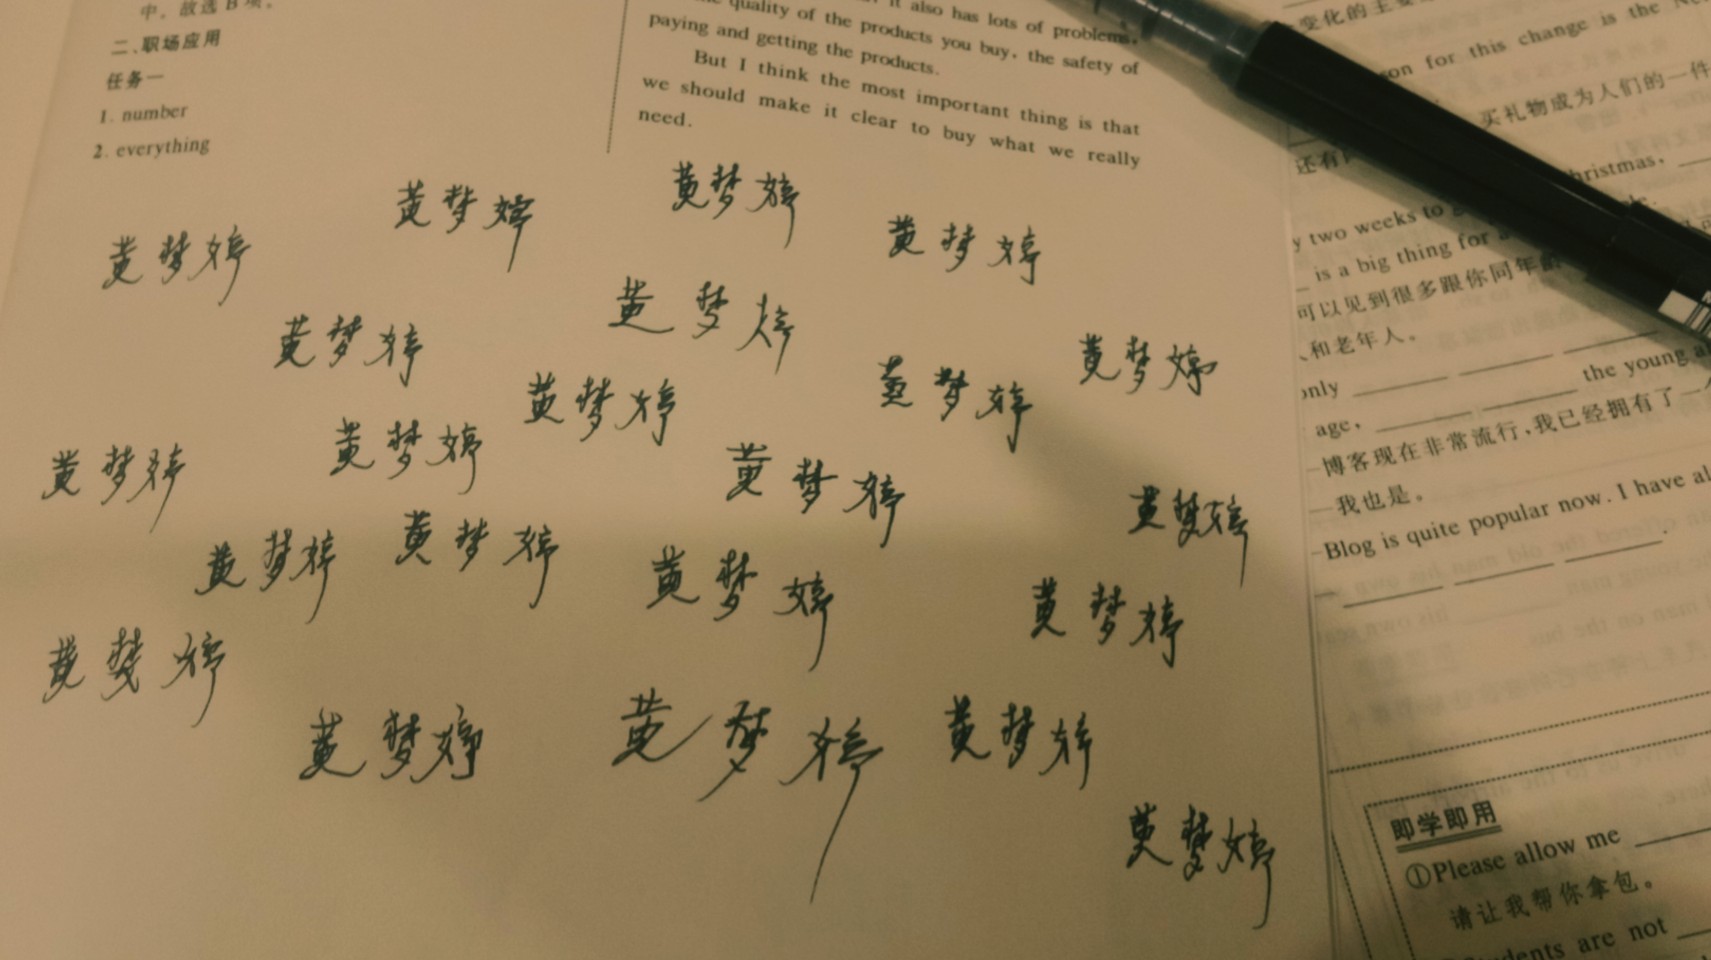 中，故选B项。
二、职场应用
任务一
1. number
2. everything
it also has lots of problems,
quality of the products you buy, the safety of
paying and getting the products.
But I think the most important thing is that
we should make it clear to buy what we really
need.
黄梦婷
黄梦婷
黄梦婷
黄梦婷
黄梦婷
黄梦婷
黄梦婷
黄梦婷
黄梦婷
黄梦婷
黄梦婷
黄梦婷
黄梦婷
黄梦婷
黄梦婷
黄梦婷
黄梦婷
黄梦婷
黄梦婷
黄梦婷
黄梦婷
黄梦婷
变化的主要
for this change is the
买礼物成为人们的一件
还有
two weeks to
is a big thing for
可以见到很多跟你同年龄
和老年人。
the young
age,
博客现在非常流行，我已经拥有了一
—我也是。
—Blog is quite popular now. I have
即学即用
①Please allow me
请让我帮你拿包。
are not